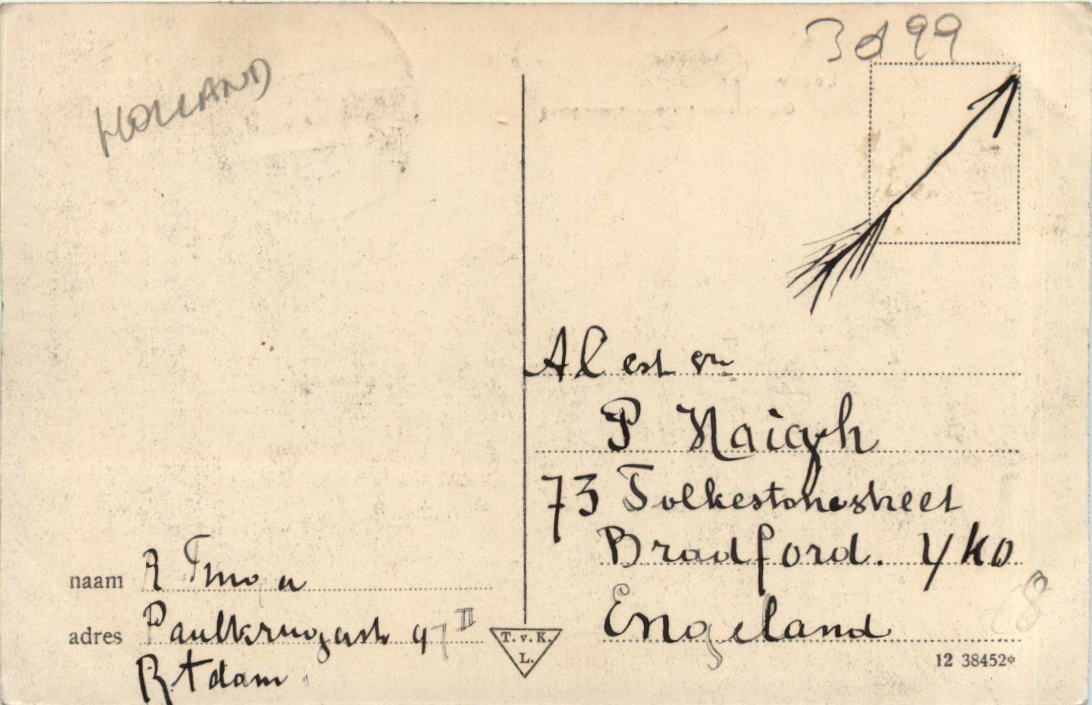 HOLLAND
3d 99
Al est en
P Haigh
73 Folkestonestreet
Bradford. Yko
Engeland
naam R
adres Paulkrugerstr 97 III
R,tdam
T. v. K.
L.
12 38452*